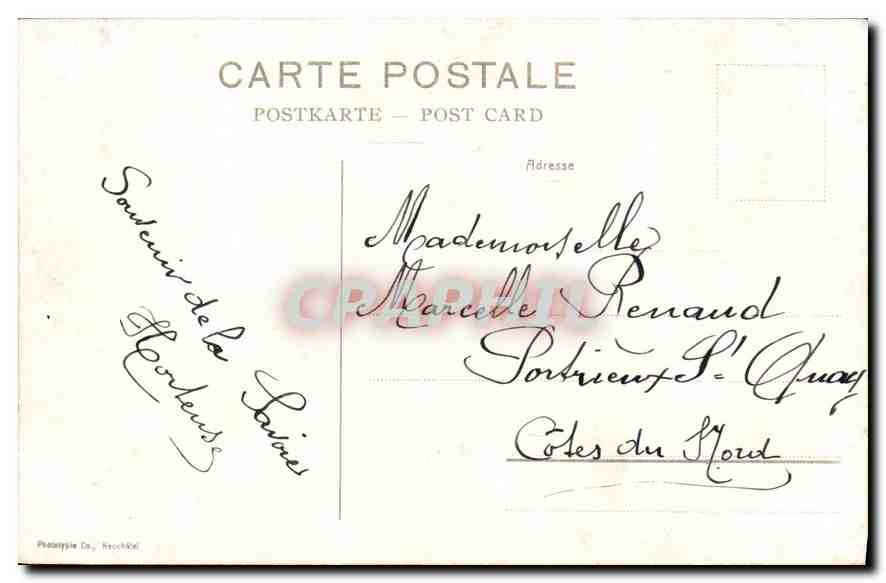 CARTE POSTALE
POSTKARTE — POST CARD
Adresse
Souvenir de la Savoie
Hortense
Mademoiselle
Marcelle Renaud
Portrieux St Quay
Côtes du Nord
CPAPHIL
Phototypie Co., Neuchâtel